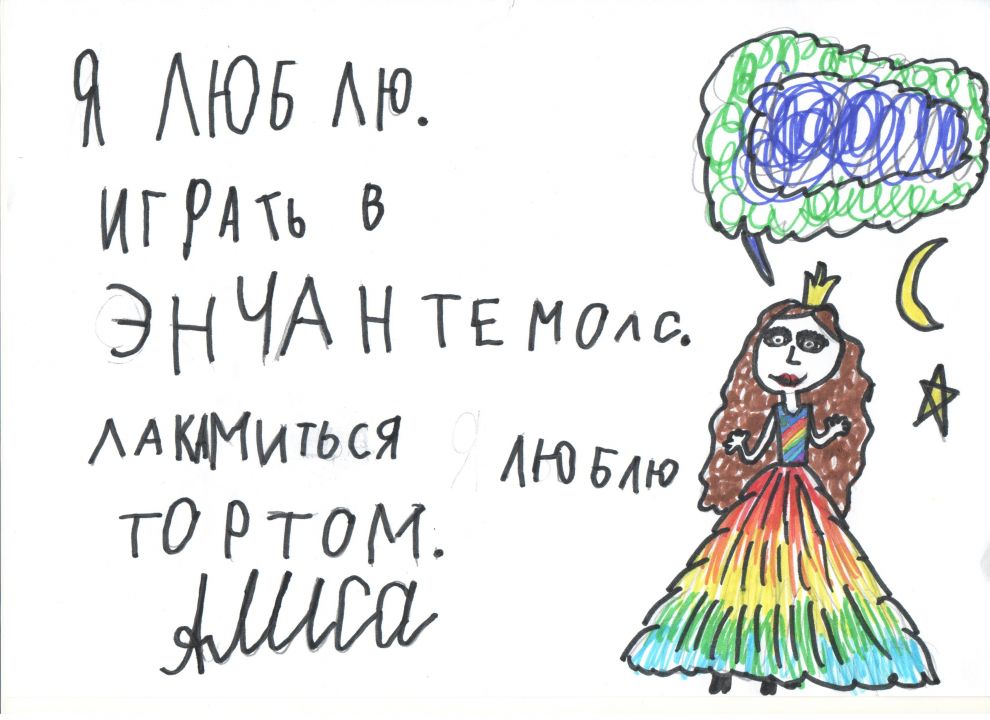 Я ЛЮБЛЮ.
ИГРАТЬ В
ЭНЧАНТЕМОЛС.
ЛАКАМИТЬСЯ Я ЛЮБЛЮ
ТОРТОМ.
Алиса